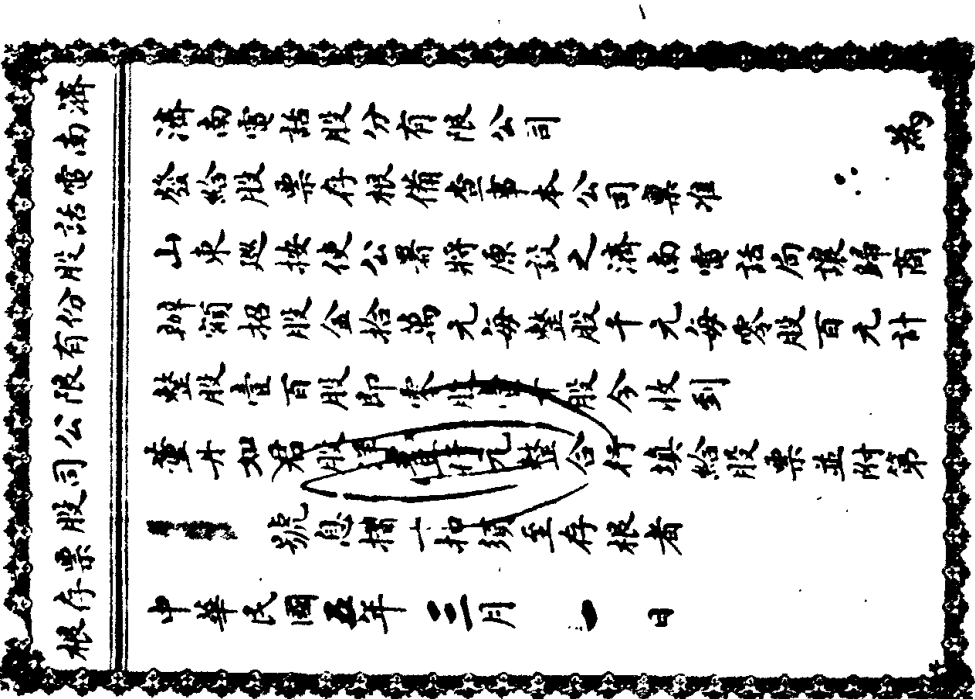 濟南電話股份有限公司股票存根
濟南電話股分有限公司 為
發給股票存根備查事本公司稟准
山東巡按使公署將原設之濟南電話局讓歸商
辦額招股金拾萬元每整股千元每零股百元計
整股壹百股即零股壹千股今收到
董丹如君股 元整合行填給股票並附第
號息摺一扣須至存根者
中華民國五年三月一日